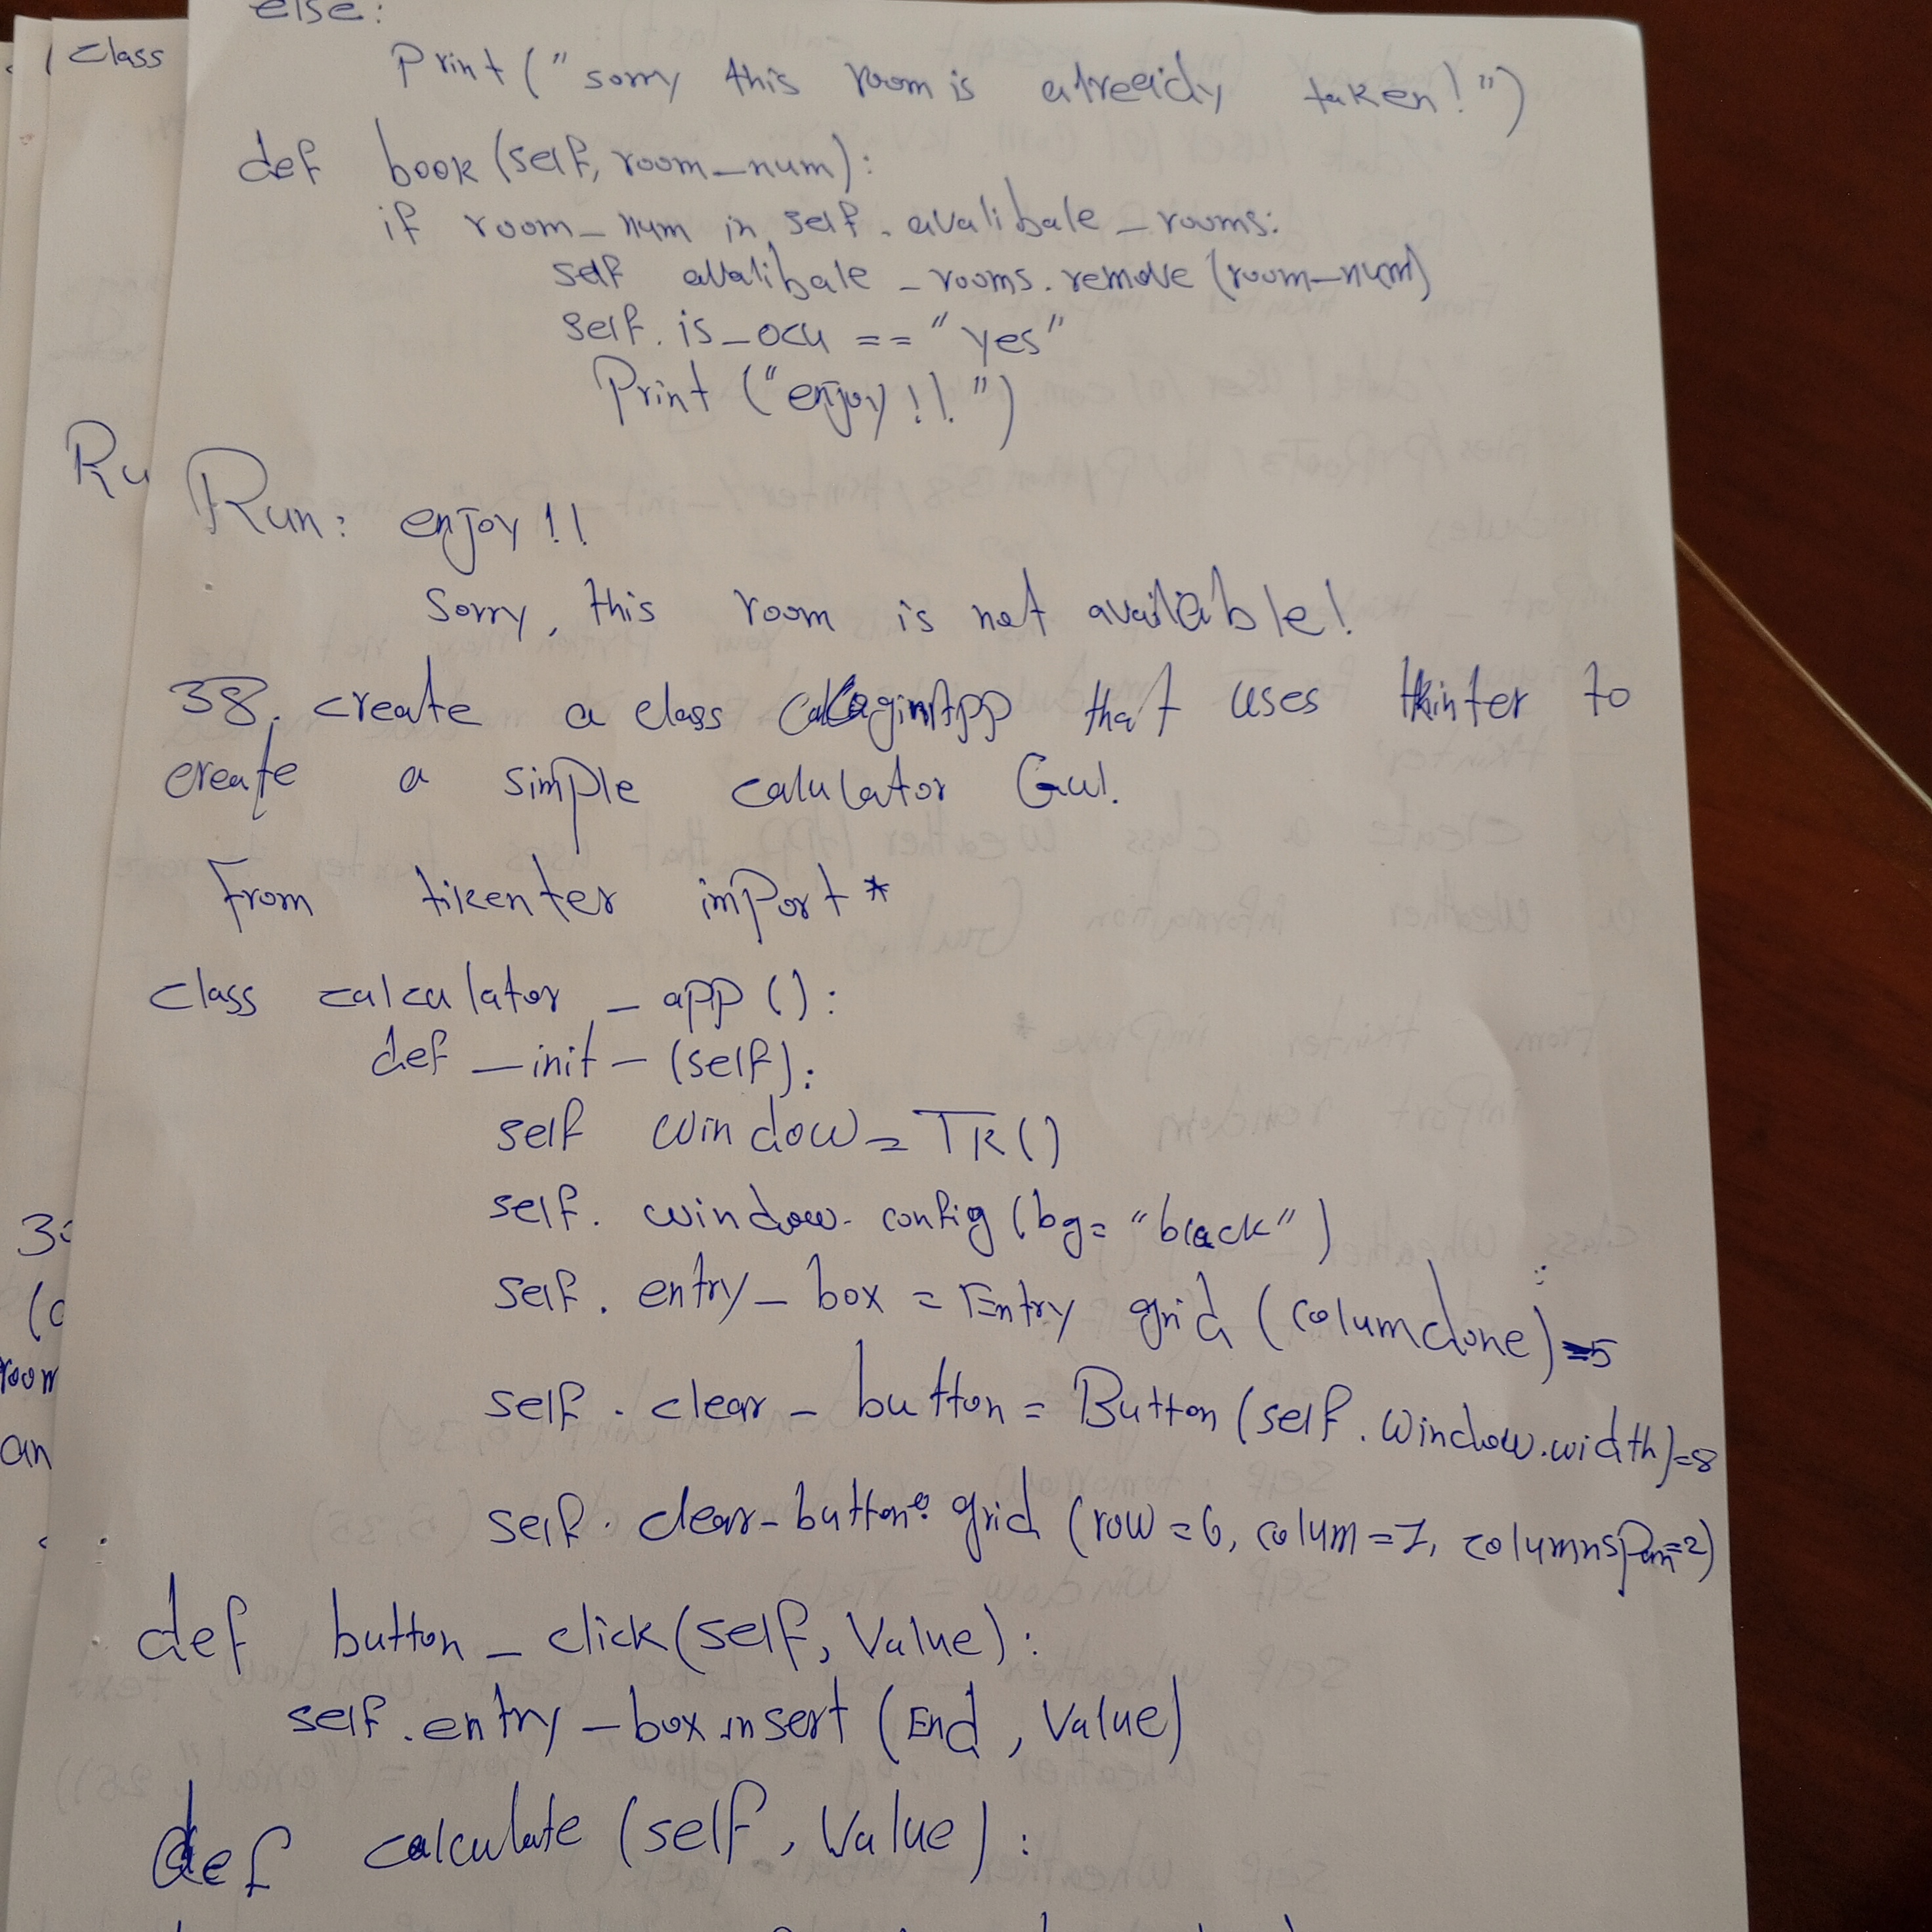 else:
Print ("sorry this room is already taken!")
def book (self, room_num):
if room_num in self. avalibale_rooms:
self avalibale_rooms. remove (room_num)
self. is_ocu == "yes"
Print ("enjoy!!.")
Run: enjoy!!
Sorry, this room is not available!
38. create a class that uses tkinter to
create a simple calulator Gui.
From tikenter import *
class calculator_app ():
def _init_ (self):
self window = TK()
self. window. config (bg= "black")
self. entry_box = Entry grid (columdone)=5
self. clear_button = Button (self. window.width)=8
self. clear_button. grid (row =6, colum =1, columnspan=2)
def button_click (self, Value):
self.entry_box.insert (End, Value)
def calculate (self, Value):
class
Ru
room
an